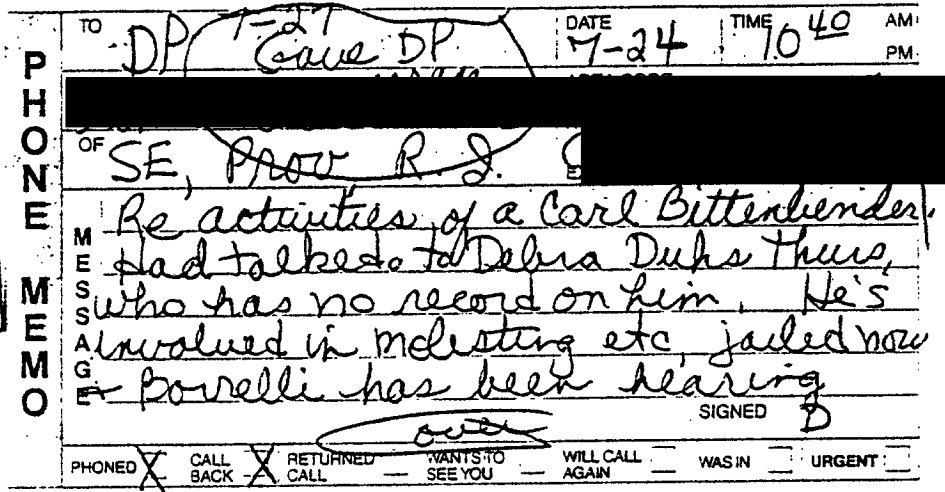 PHONE MEMO
TO DP 7-27 Gave DP DATE 7-24 TIME 10 40 AM PM
OF SE, Prov R.I.
MESSAGE
Re activities of a Carl Bittenbender.
Had talked to Debra Duhs Thurs,
who has no record on him. He's
involved in molesting etc, jailed now
Borrelli has been hearing
SIGNED D
over
PHONED X CALL BACK X RETURNED CALL WANTS TO SEE YOU WILL CALL AGAIN WAS IN URGENT